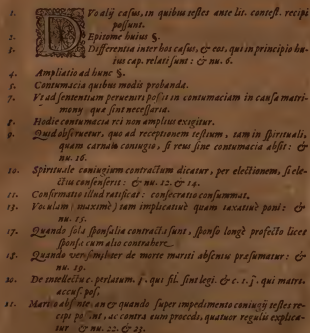 1. Dvo alij casus, in quibus testes ante lit. contest. recipi
possunt.
2. Epitome huius §.
3. Differentia inter hos casus, & eos, qui in principio huius
cap. relati sunt : & nu. 6.
4. Ampliatio ad hunc §.
5. Contumacia quibus modis probanda.
7. Vt ad sententiam perueniri possit in contumaciam in causa matrimony
quæ sint necessaria.
8. Hodie contumacia rei non amplius exigitur.
9. Quid obseruetur, quo ad receptionem testium, tam in spirituali,
quam carnali coniugio, si reus sine contumacia absit : &
nu. 16.
10. Spirituale coniugium contractum dicatur, per electionem, si electus
consenserit : & nu. 12. & 14.
11. Confirmatio illud ratificat : consecratio consummat.
13. Voculam, maximè, tam implicatiuè quam taxatiuè poni : &
nu. 15.
17. Quando sola sponsalia contracta sunt, sponso longè profecto licet
sponsæ cum alio contrahere.
18. Quando verisimiliter de morte mariti absentis præsumatur : &
nu. 19.
20. De intellectu c. perlatum, j. qui fil. sint legi. & c. 1. j. qui matri.
accus. pos.
21. Marito absente, an & quando super impedimento coniugij testes recipi
possint, ac contra eum procedi, quatuor regulis explicatur
& nu. 22. & 23.